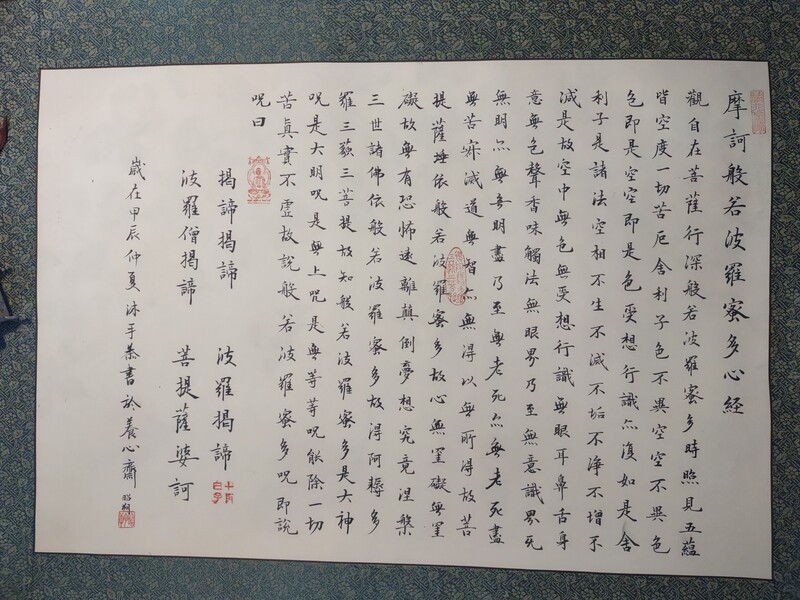 摩訶般若波羅蜜多心経
觀自在菩薩行深般若波羅蜜多時照見五蘊
皆空度一切苦厄舍利子色不異空空不異色
色即是空空即是色受想行識亦復如是舍
利子是諸法空相不生不滅不垢不净不增不
減是故空中無色無受想行識無眼耳鼻舌身
意無色聲香味觸法無眼界乃至無意識界无
無明亦無無明盡乃至無老死亦無老死盡
無苦寂滅道無智亦無得以無所得故菩
提薩埵依般若波羅蜜多故心無罣礙無罣
礙故無有恐怖遠離顛倒夢想究竟涅槃
三世諸佛依般若波羅蜜多故得阿耨多
羅三藐三菩提故知般若波羅蜜多是大神
咒是大明咒是無上咒是無等等咒能除一切
苦真實不虛故說般若波羅蜜多咒即說
咒曰
揭諦揭諦 波羅揭諦
波羅僧揭諦 菩提薩婆訶
歲在甲辰仲夏沐手恭書於養心齋